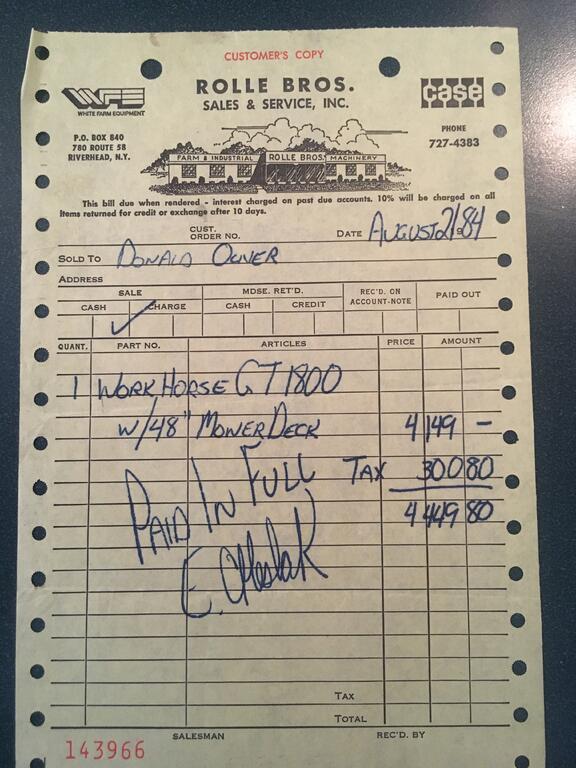 CUSTOMER'S COPY
WFE
WHITE FARM EQUIPMENT
ROLLE BROS.
SALES & SERVICE, INC.
case
P.O. BOX 840
780 ROUTE 58
RIVERHEAD, N.Y.
PHONE
727-4383
FARM & INDUSTRIAL ROLLE BROS. MACHINERY
This bill due when rendered - interest charged on past due accounts. 10% will be charged on all
items returned for credit or exchange after 10 days.
CUST.
ORDER NO.
DATE AUGUST 21 1984
SOLD TO DONALD OLIVER
ADDRESS
SALE MDSE. RET'D. REC'D. ON ACCOUNT-NOTE PAID OUT
CASH CHARGE CASH CREDIT
QUANT. PART NO. ARTICLES PRICE AMOUNT
1 WORK HORSE GT 1800
W/48" MOWER DECK 4149 -
TAX 300 80
4449 80
PAID IN FULL
TAX
TOTAL
143966 SALESMAN REC'D. BY